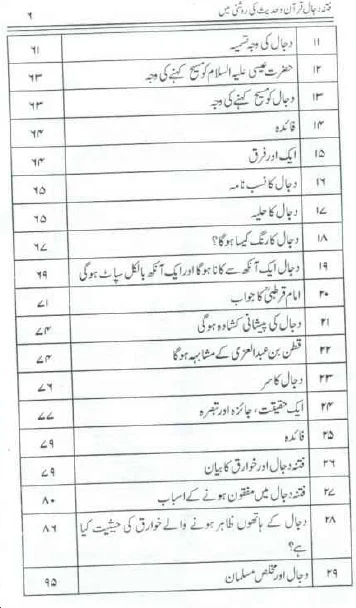 فتنۂ دجال قرآن و حدیث کی روشنی میں ۶
۱۱ دجال کی وجہ تسمیہ ۶۱
۱۲ حضرت عیسیٰ علیہ السلام کو مسیح کہنے کی وجہ ۶۳
۱۳ دجال کو مسیح کہنے کی وجہ ۶۳
۱۴ فائدہ ۶۴
۱۵ ایک اور فرق ۶۴
۱۶ دجال کا نسب نامہ ۶۵
۱۷ دجال کا حلیہ ۶۵
۱۸ دجال کا رنگ کیسا ہوگا؟ ۶۷
۱۹ دجال ایک آنکھ سے کانا ہوگا اور ایک آنکھ بالکل سپاٹ ہوگی ۶۹
۲۰ امام قرطبیؒ کا جواب ۷۱
۲۱ دجال کی پیشانی کشادہ ہوگی ۷۴
۲۲ قطن بن عبدالعزی کے مشابہہ ہوگا ۷۴
۲۳ دجال کا سر ۷۶
۲۴ ایک حقیقت، جائزہ اور تبصرہ ۷۷
۲۵ فائدہ ۷۹
۲۶ فتنۂ دجال اور خوارق کا بیان ۷۹
۲۷ فتنۂ دجال میں مفتون ہونے کے اسباب ۸۰
۲۸ دجال کے ہاتھوں ظاہر ہونے والے خوارق کی حیثیت کیا ۸۶
ہے؟
۲۹ دجال اور مخلص مسلمان ۹۵